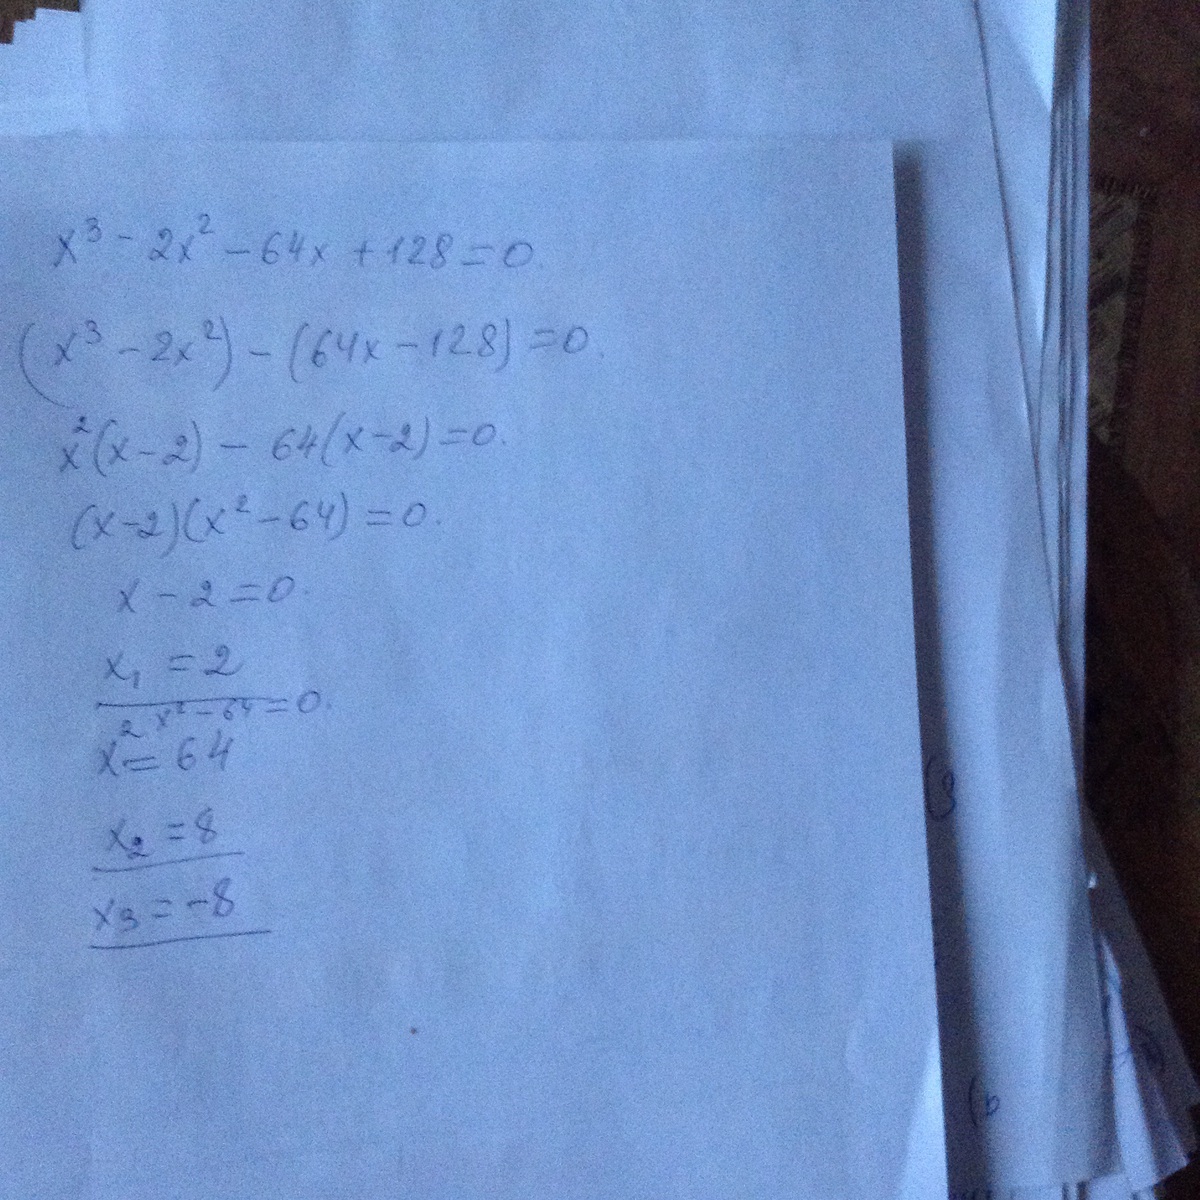 x³ - 2x² - 64x + 128 = 0.
(x³ - 2x²) - (64x - 128) = 0.
x²(x-2) - 64(x-2) = 0.
(x-2)(x² - 64) = 0.
x - 2 = 0.
x₁ = 2
x² - 64 = 0.
x² = 64
x₂ = 8
x₃ = -8